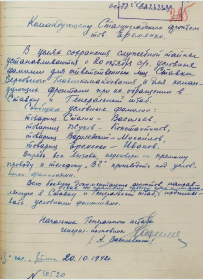 Командующему Сталинградским фронтом
тов. Еременко.
В целях сохранения служебной тайны
устанавливаются с 20 октября с/г. условные
фамилии для ответственных лиц Ставки
Верховного Главнокомандования и для коман-
дующих фронтами при их обращении в
Ставку и Генеральный штаб.
условные фамилии
товарищ Сталин - Васильев
товарищ Жуков - Константинов
товарищ Василевский - Михайлов
товарищ Еременко - Иванов
Впредь все вызова переговоры по прямому
проводу и телефону "ВЧ" производить под услов-
ными фамилиями.
Всю боевую документацию фронтов направ-
в Ставку и Генеральный штаб
условной фамилией.
Начальник Генерального штаба
генерал-полковник
(А. Василевский)
20.10.1942г.